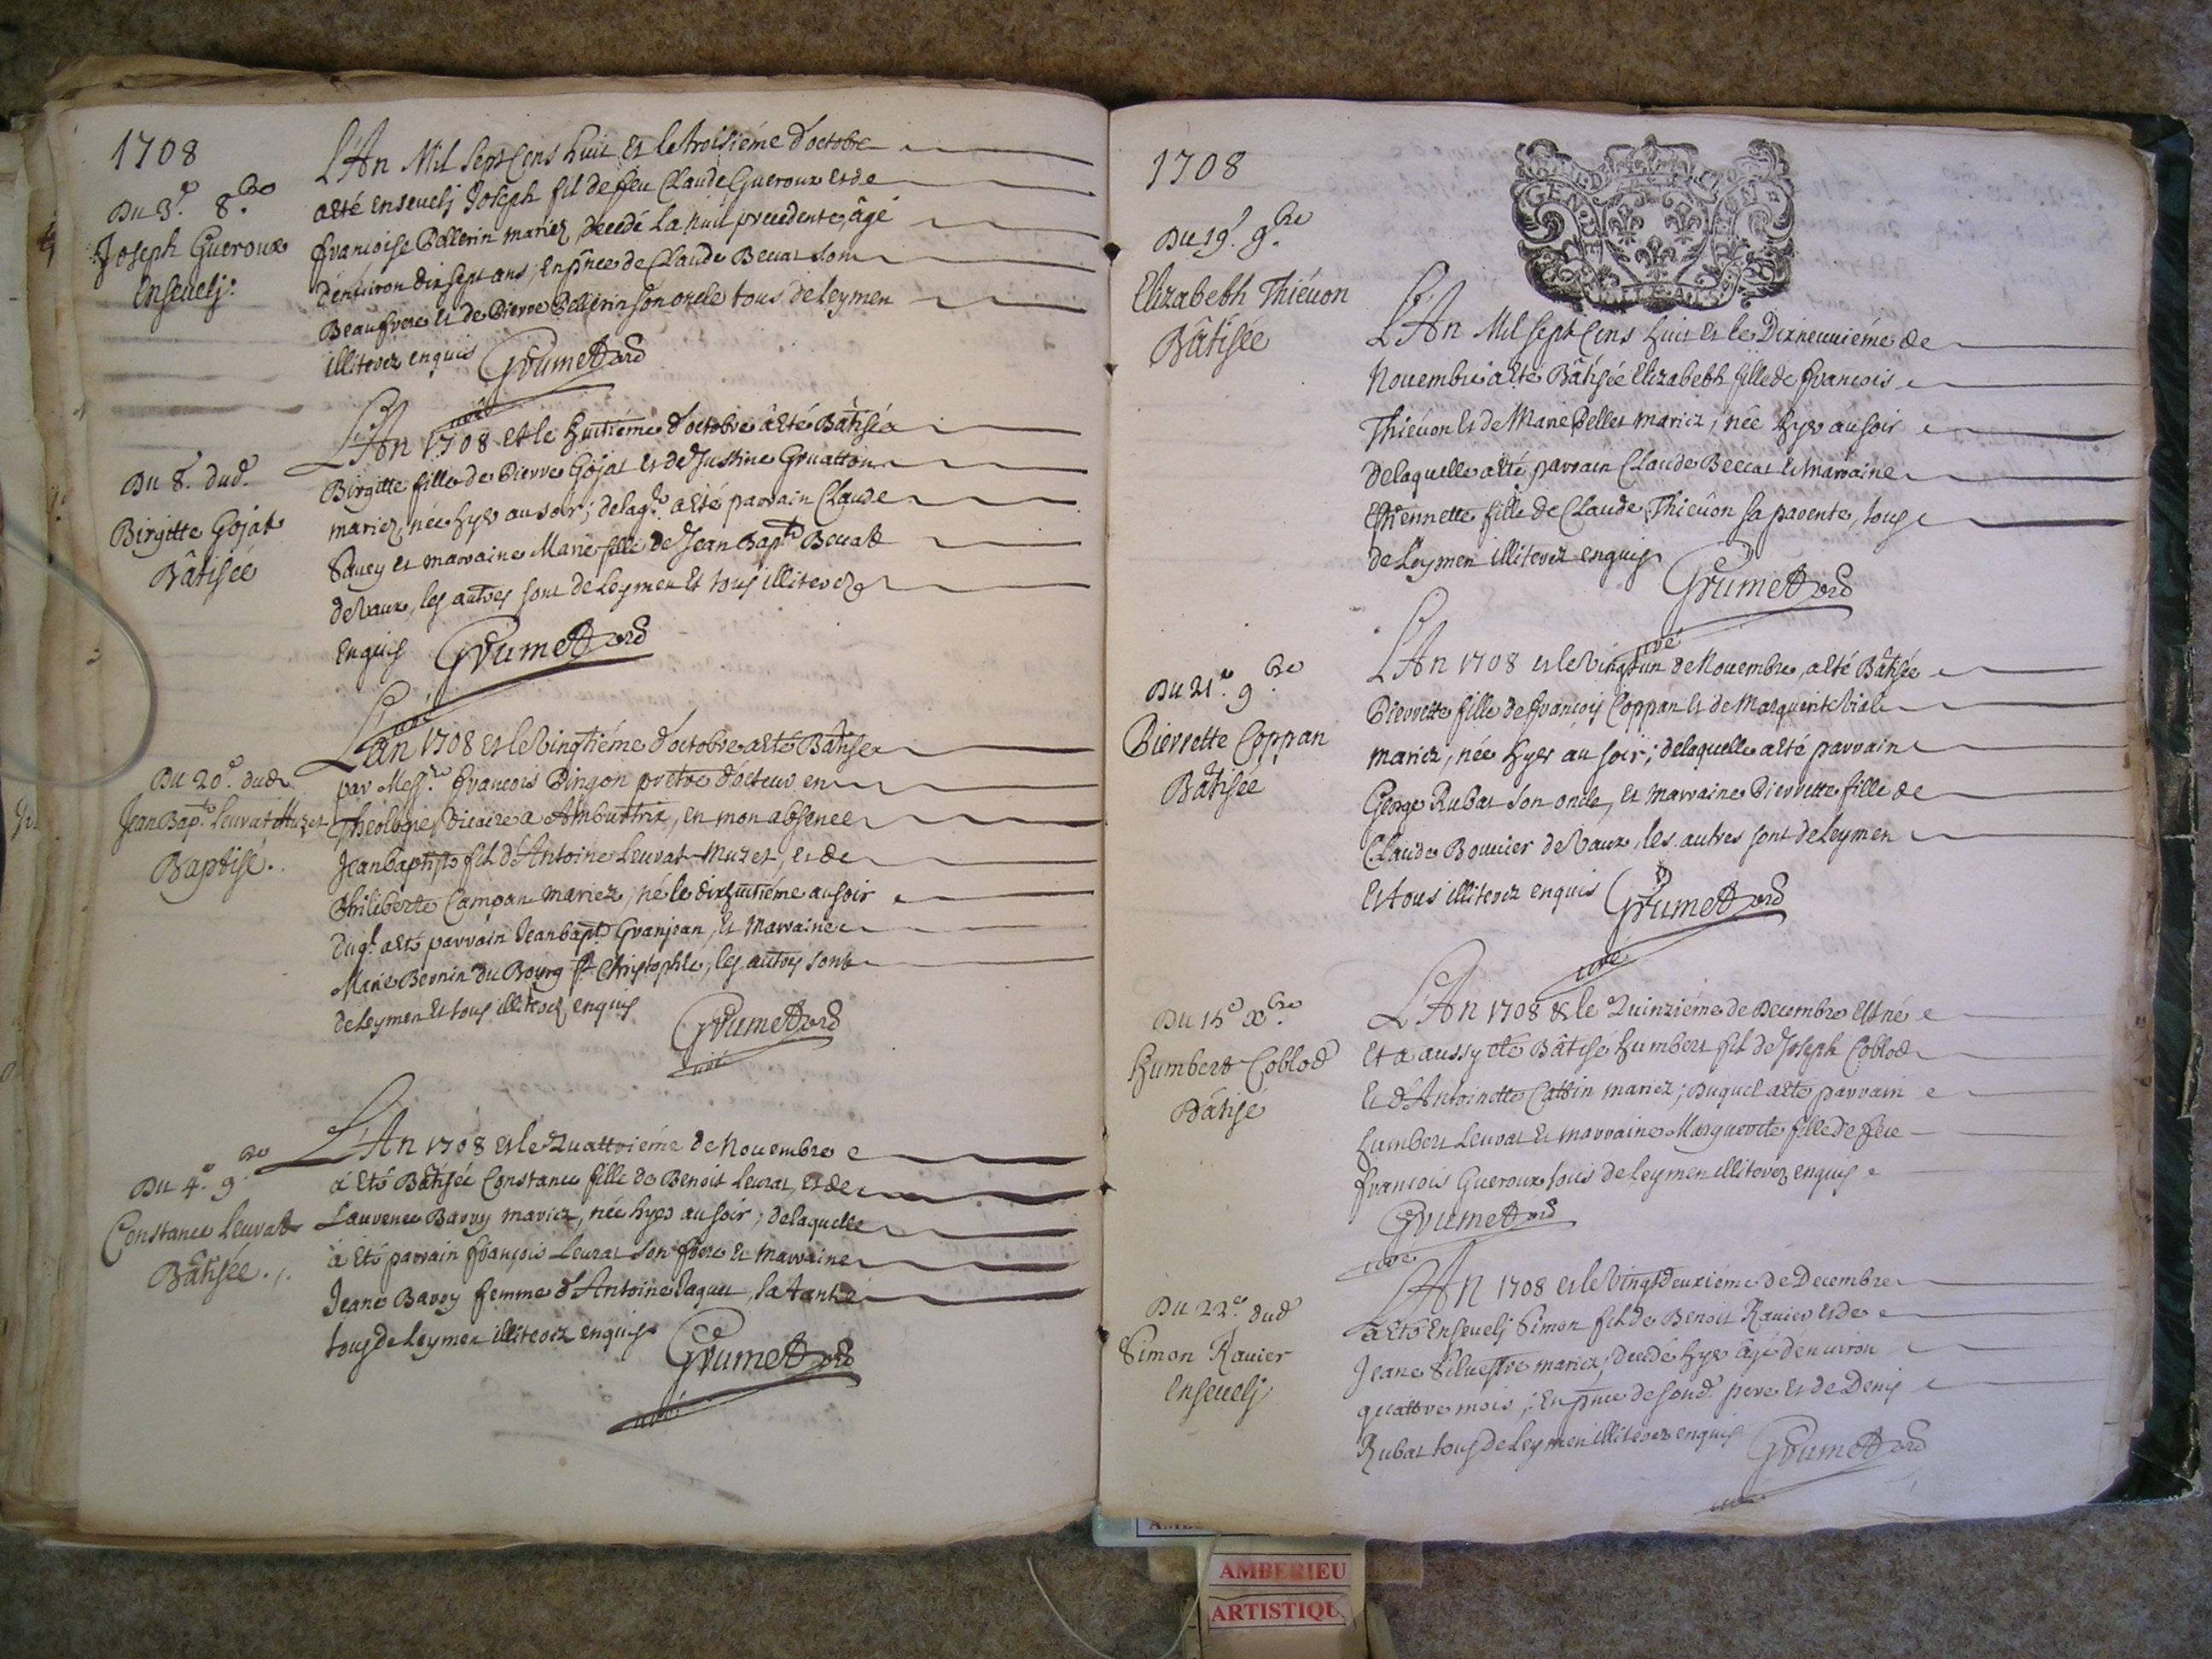 1708
Du 3e. 8.bre
Joseph Gueroux
Enseuelj:
L'An Mil Sept Cens huit Et le troisiéme d'octobre
aété enseuelj Joseph fil de feu Claude Gueroux et de
francoise Pellerin mariez, decedé La nuit precedente, âgé
d'enuiron dix sept ans; En pnce de Claude Beccat son
Beaufrere et de Pierre Pellerin son oncle tous de leymen
illiterez enquis Grumet ord
curé
Du 8. dud.
Birgitte Gojat
Bâtisée
L'An 1708 et le huitiéme d'octobre à été Bâtiséé
Birgitte fille de Pierre Gojat et de Justine Gruatton
mariez, née hyer au soir; delaq.le a été parrain Claude
Sauey et marraine Marie fille de Jean Bap.te Beccat
de Vaux, les autres sont de Leymen et tous illiterez
Enquis Grumet ord
curé
Du 20e. dud.
Jean Bap.te Leuvat Muzet
Baptisé.
L'an 1708 et le Vingtiéme d'octobre a été Batisé
par Mess.re francois Dingon prétre docteur en
Theologie, Vicaire a Ambuttrix, en mon absence
Jean baptiste fil d'Antoine Leuvat-Muzet, et de
Philiberte Campan mariez, né le dixhuitiéme au soir
Duq.l a été parrain Jean bapt.e Granjean, et Marraine
Marie Bernin du Bourg St Christophle, les autres sont
de Leymen Et tous illiterez enquis
Grumet ord
curé
Du 4e. 9.bre
Constance Leuvat
Bâtisée.
L'An 1708 et le Quattriéme de Nouembre
à Eté Bâtisée Constance fille de Benoit Leurat, et de
Laurence Barry mariez, née hyer au soir; delaquelle
à Eté parrain françois Leurat son frere et marraine
Jeane Barry femme d'Antoine Jaquet, sa tante
tous de Leymen illiterez enquis Grumet ord
curé
1708
Du 19e. 9.bre
Elizabeth Thiéuon
Bâtisée
L'An Mil Sept Cens huit et le Dixneuuiéme de
Nouembre a Eté Bâtisée Elizabeth fille de francois
Thiéuon et de Marie Pellet mariez, née hyer au soir
delaquelle a Eté parrain Claude Beccat et marraine
Ethiennette fille de Claude Thieûon sa parente, tous
de Leymen illiterez enquis
Grumet ord
curé
Du 21e. 9.bre
Pierrette Coppan
Bâtisée
L'An 1708 et le Vingt un de Nouembre, a été Bâtisée
Pierrette fille de françois Coppan et de Marguerite Viale
mariez, née hyer au soir; delaquelle a été parrain
George Rubat son oncle, et Marraine Pierrette fille de
Claude Bouuier de Vaux, les autres sont de Leymen
Et tous illiterez enquis Grumet ord
curé
Du 15e Xbre
Humbert Coblod
Bâtisé
L'An 1708 & le Quinziéme de Decembre Est né
Et a aussy eté Bâtisé Humbert fil de Joseph Coblod
Et d'Antoinette Cattin mariez; Duquel a été parrain
humbert Leuvat et marraine Marguerite fille de feu
francois Gueroux tous de Leymen illiterez enquis
Grumet ord
curé
Du 22e. dud
Simon Rauier
Enseuelj
L'An 1708 et le Vingtdeuxiéme de Decembre
a Eté Enseuelj Simon fil de Benoit Rauier et de
Jeane Siluestre mariez, decedé hyer âgé denuiron
quattre mois, En pnce de sond. pere et de Denis
Rubat tous de Leymen illiterez enquis Grumet ord
curé
AMBERIEU
ARTISTIQU